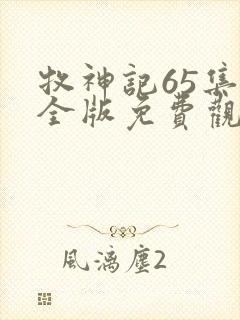 牧神記65集
全版免費觀
風漓塵2